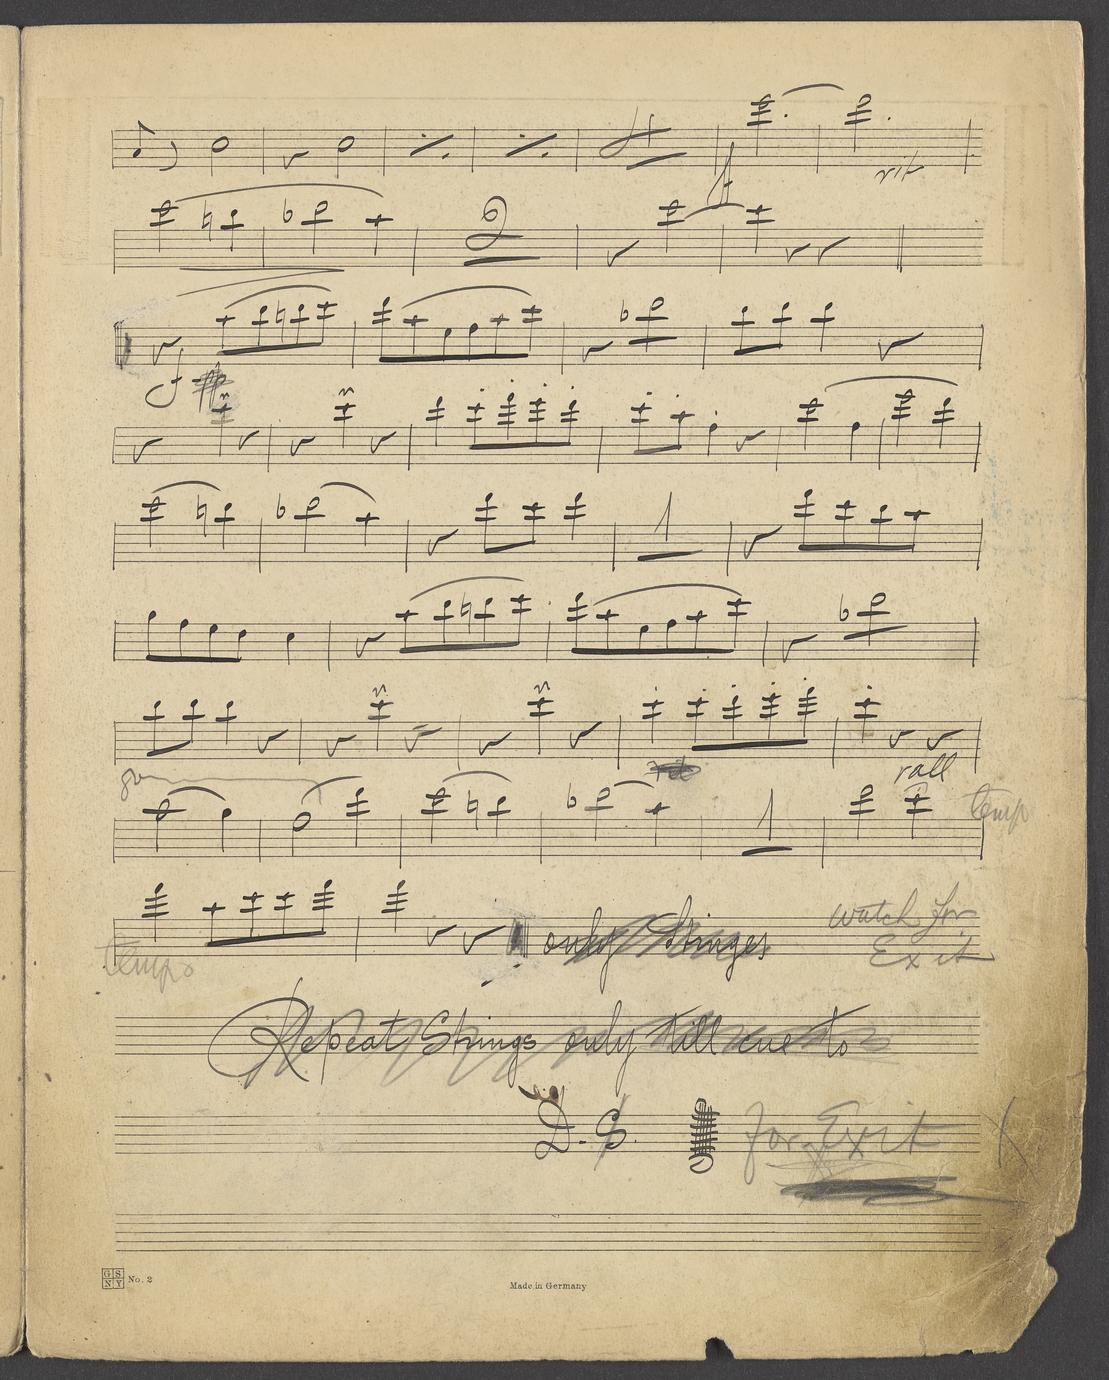 rit
2
f
1
rit
8va
rall
tempo
1
tempo
only Stringes
Watch for
Exit
Repeat Strings only till cue to
D.S. for Exit
GS
NY No. 2
Made in Germany